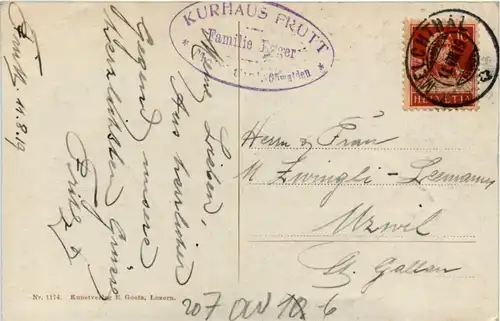 Frutt. 11.8.19
Meine Lieben,
Aus herrlicher
Gegend unsere
herzlichsten Grüsse
Fritz
KURHAUS FRUTT
Familie Egger
Obwalden
MELCHTHAL
HELVETIA
Herrn & Frau
M Zwingli-Leemann
Uzwil
St. Gallen
Nr. 1174. Kunstverlag E. Goetz, Luzern.
207 AU 10 6